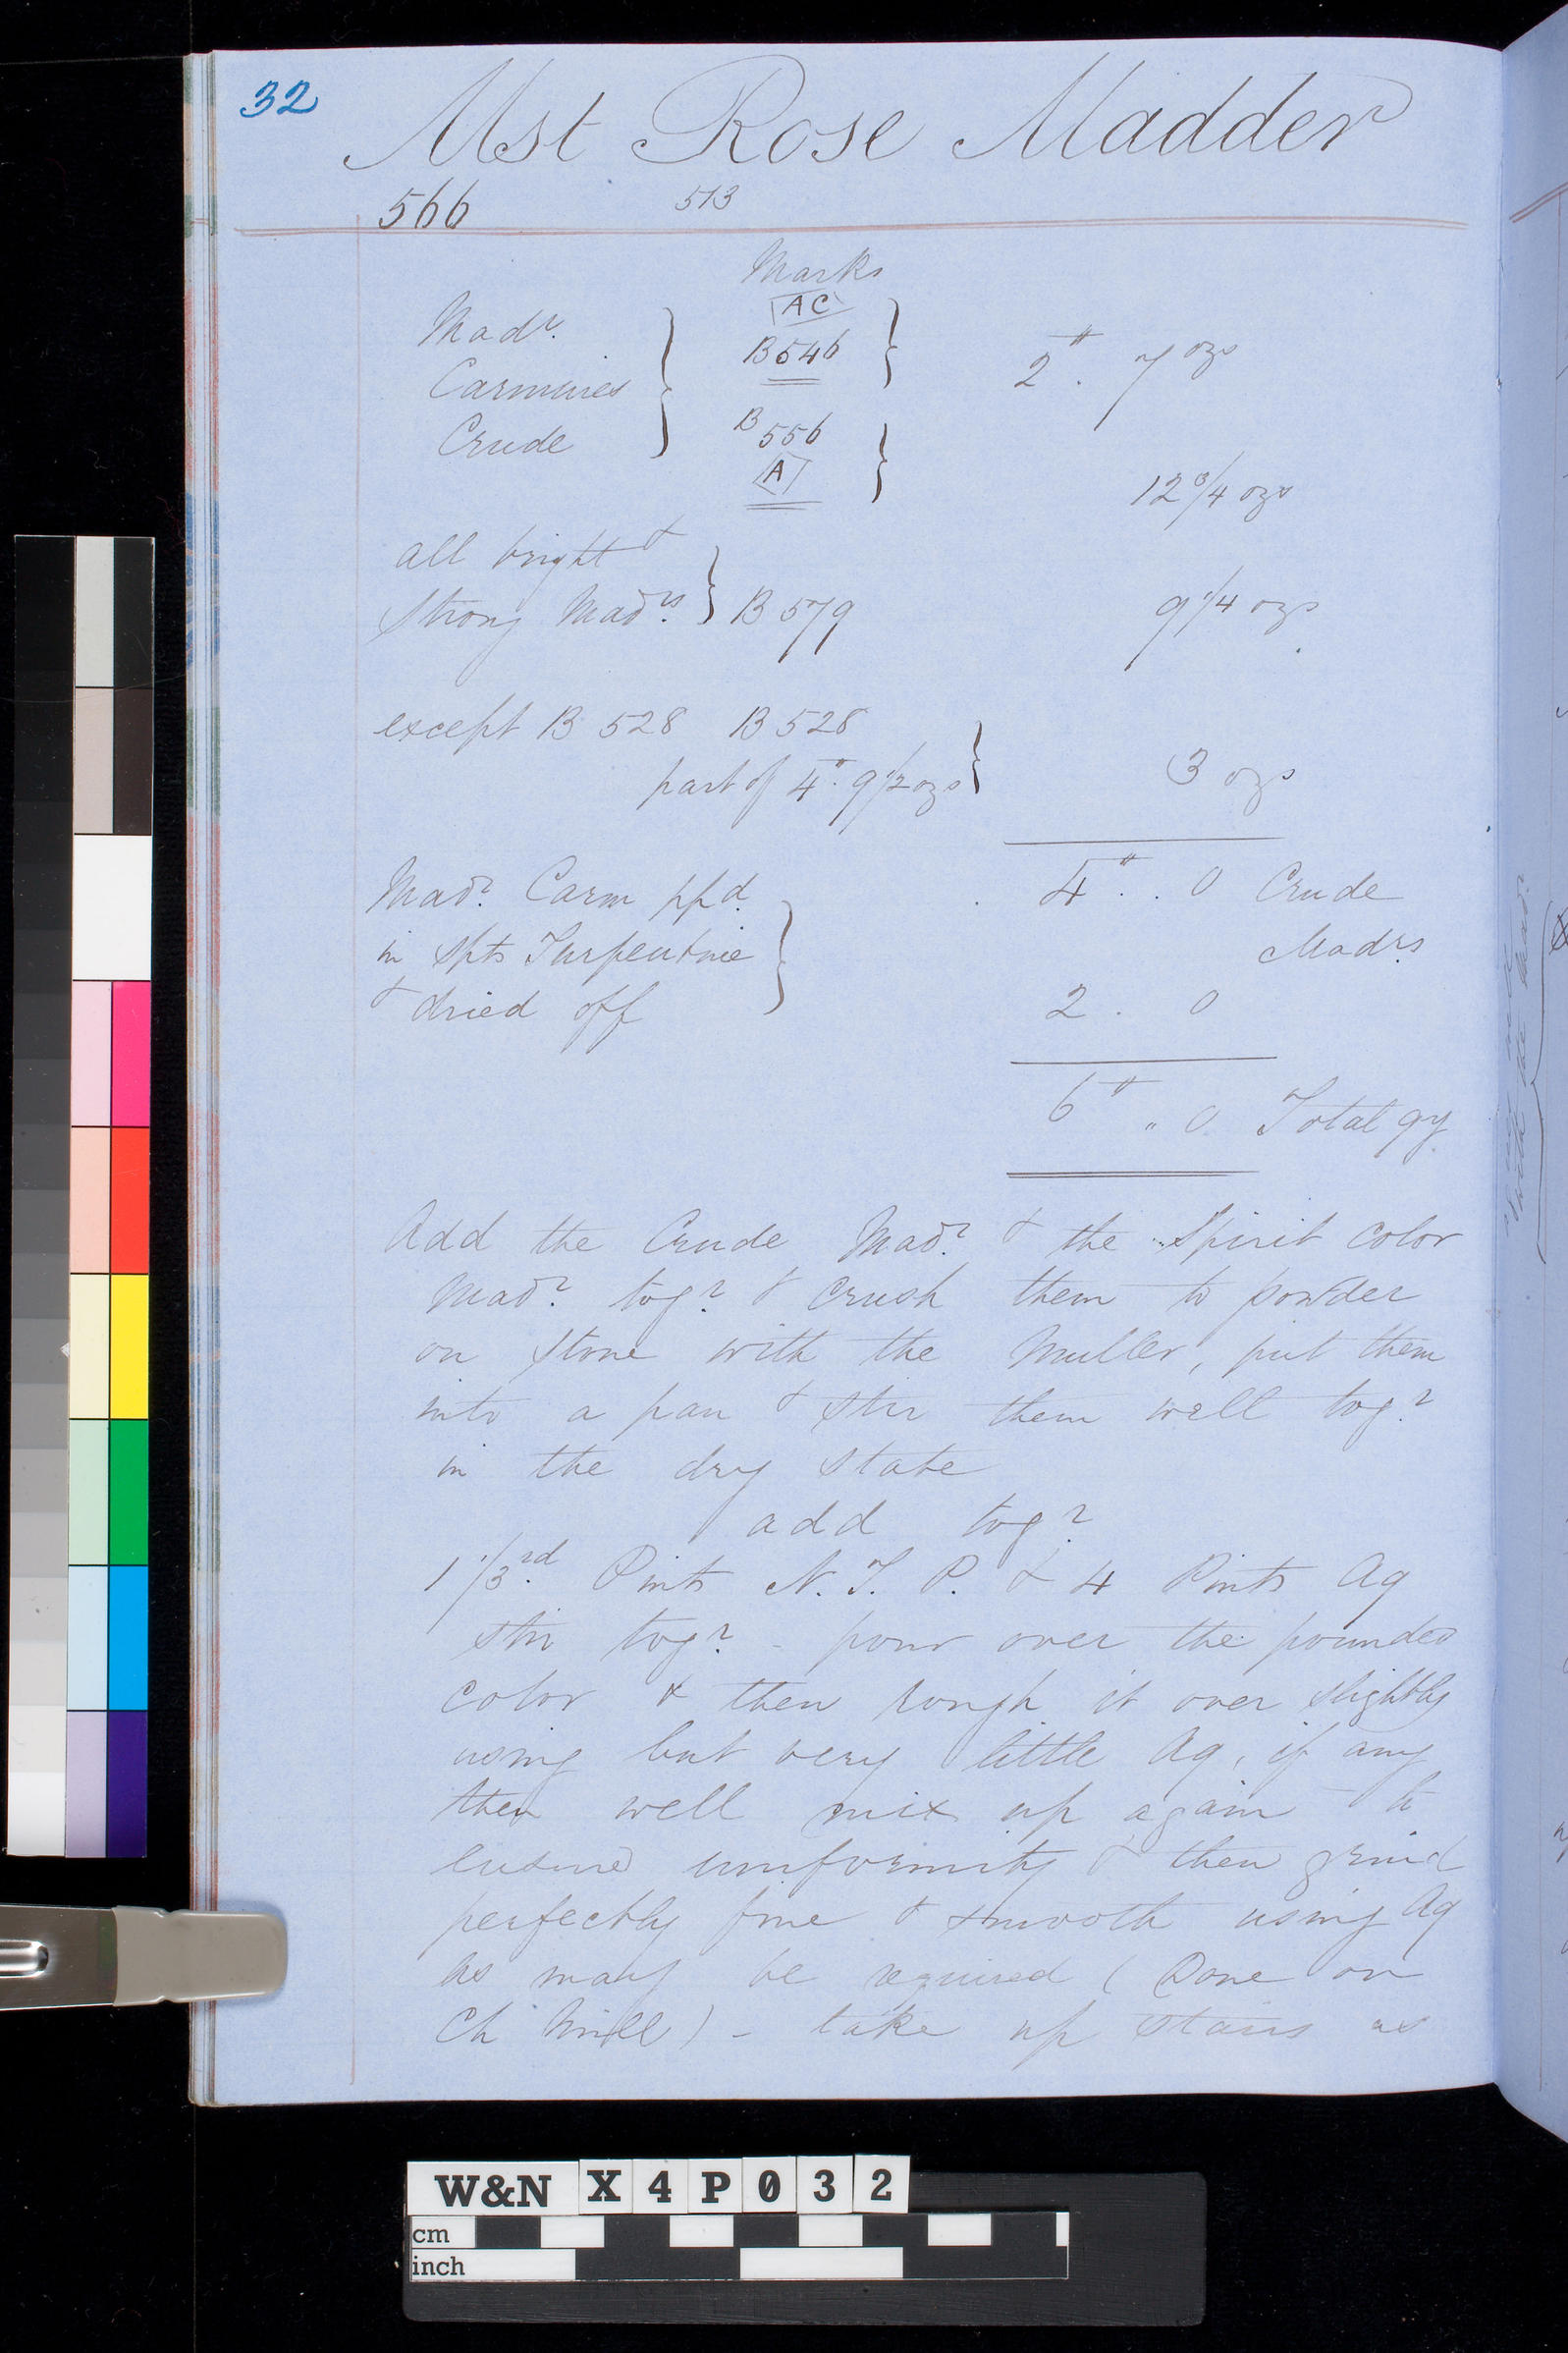 32
Mst Rose Madder
566 513
Marks
Madr. AC
B 546 2 ℔. 7 ozs
Carmines
Crude B 556
A 12 3/4 ozs
all bright &
strong Madrs. B 579 9 1/4 ozs
except B 528 B 528
part of 4 ℔. 9 1/2 ozs 3 ozs
Madr. Carm ppd. 4 ℔. . 0 Crude
in spts Turpentine Madrs
& dried off 2 . 0
6 ℔ " 0 Total qy.
Add the Crude Madr. & the Spirit color
Madr. togr. & crush them to powder
on stone with the Muller, put them
into a pan & stir them well togr.
in the dry state
add togr.
1 1/3rd. Pints N. T. P. & 4 Pints Aq
stir togr. - pour over the pounded
color & then rough it over slightly
using but very little Aq, if any
then well mix up again to
ensure uniformity & then grind
perfectly fine & smooth using Aq
as may be required (Done on
Ch Mill) - take up stains as
with the Mad.
W&N X 4 P 0 3 2
cm
inch